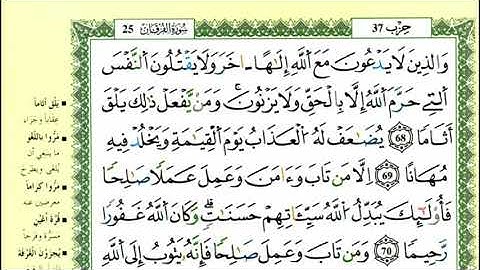 حِزْب 37
سُورَةُ الفُرْقَان 25
وَالذِينَ لَا يَدْعُونَ مَعَ اَللَّهِ إِلَٰهاً ـ اخَرَ وَلَا يَقْتُلُونَ اَلنَّفْسَ
اَلتِے حَرَّمَ اَللَّهُ إِلَّا بِالْحَقِّ وَلَا يَزْنُونَۖ وَمَنْ يَّفْعَلْ ذَٰلِكَ يَلْقَ
أَثَاماً 68 يُضَٰعَفْ لَهُ اُلْعَذَابُ يَوْمَ اَلْقِيَٰمَةِ وَيَخْلُدْ فِيهِ
مُهَاناً 69 اِلَّا مَن تَابَ وَءَامَنَ وَعَمِلَ عَمَلاً صَٰلِحاً
فَأُوْلَٰٓئِكَ يُبَدِّلُ اُللَّهُ سَيِّـَٔاتِهِمْ حَسَنَٰتٍۖ وَكَانَ اَللَّهُ غَفُوراً
رَّحِيماً 70 وَمَن تَابَ وَعَمِلَ صَٰلِحاً فَإِنَّهُۥ يَتُوبُ إِلَى اَللَّهِ
يَلْقَ أثاماً
عقاباً وجزاء
مَرُّوا باللَّغْوِ
مَرُّوا كِرَاماً
معرضين عنه
قُرَّةَ أعْيُنٍ
مسرَّة وفرحاً
يُجْزَوْنَ الْغُرْفَةَ